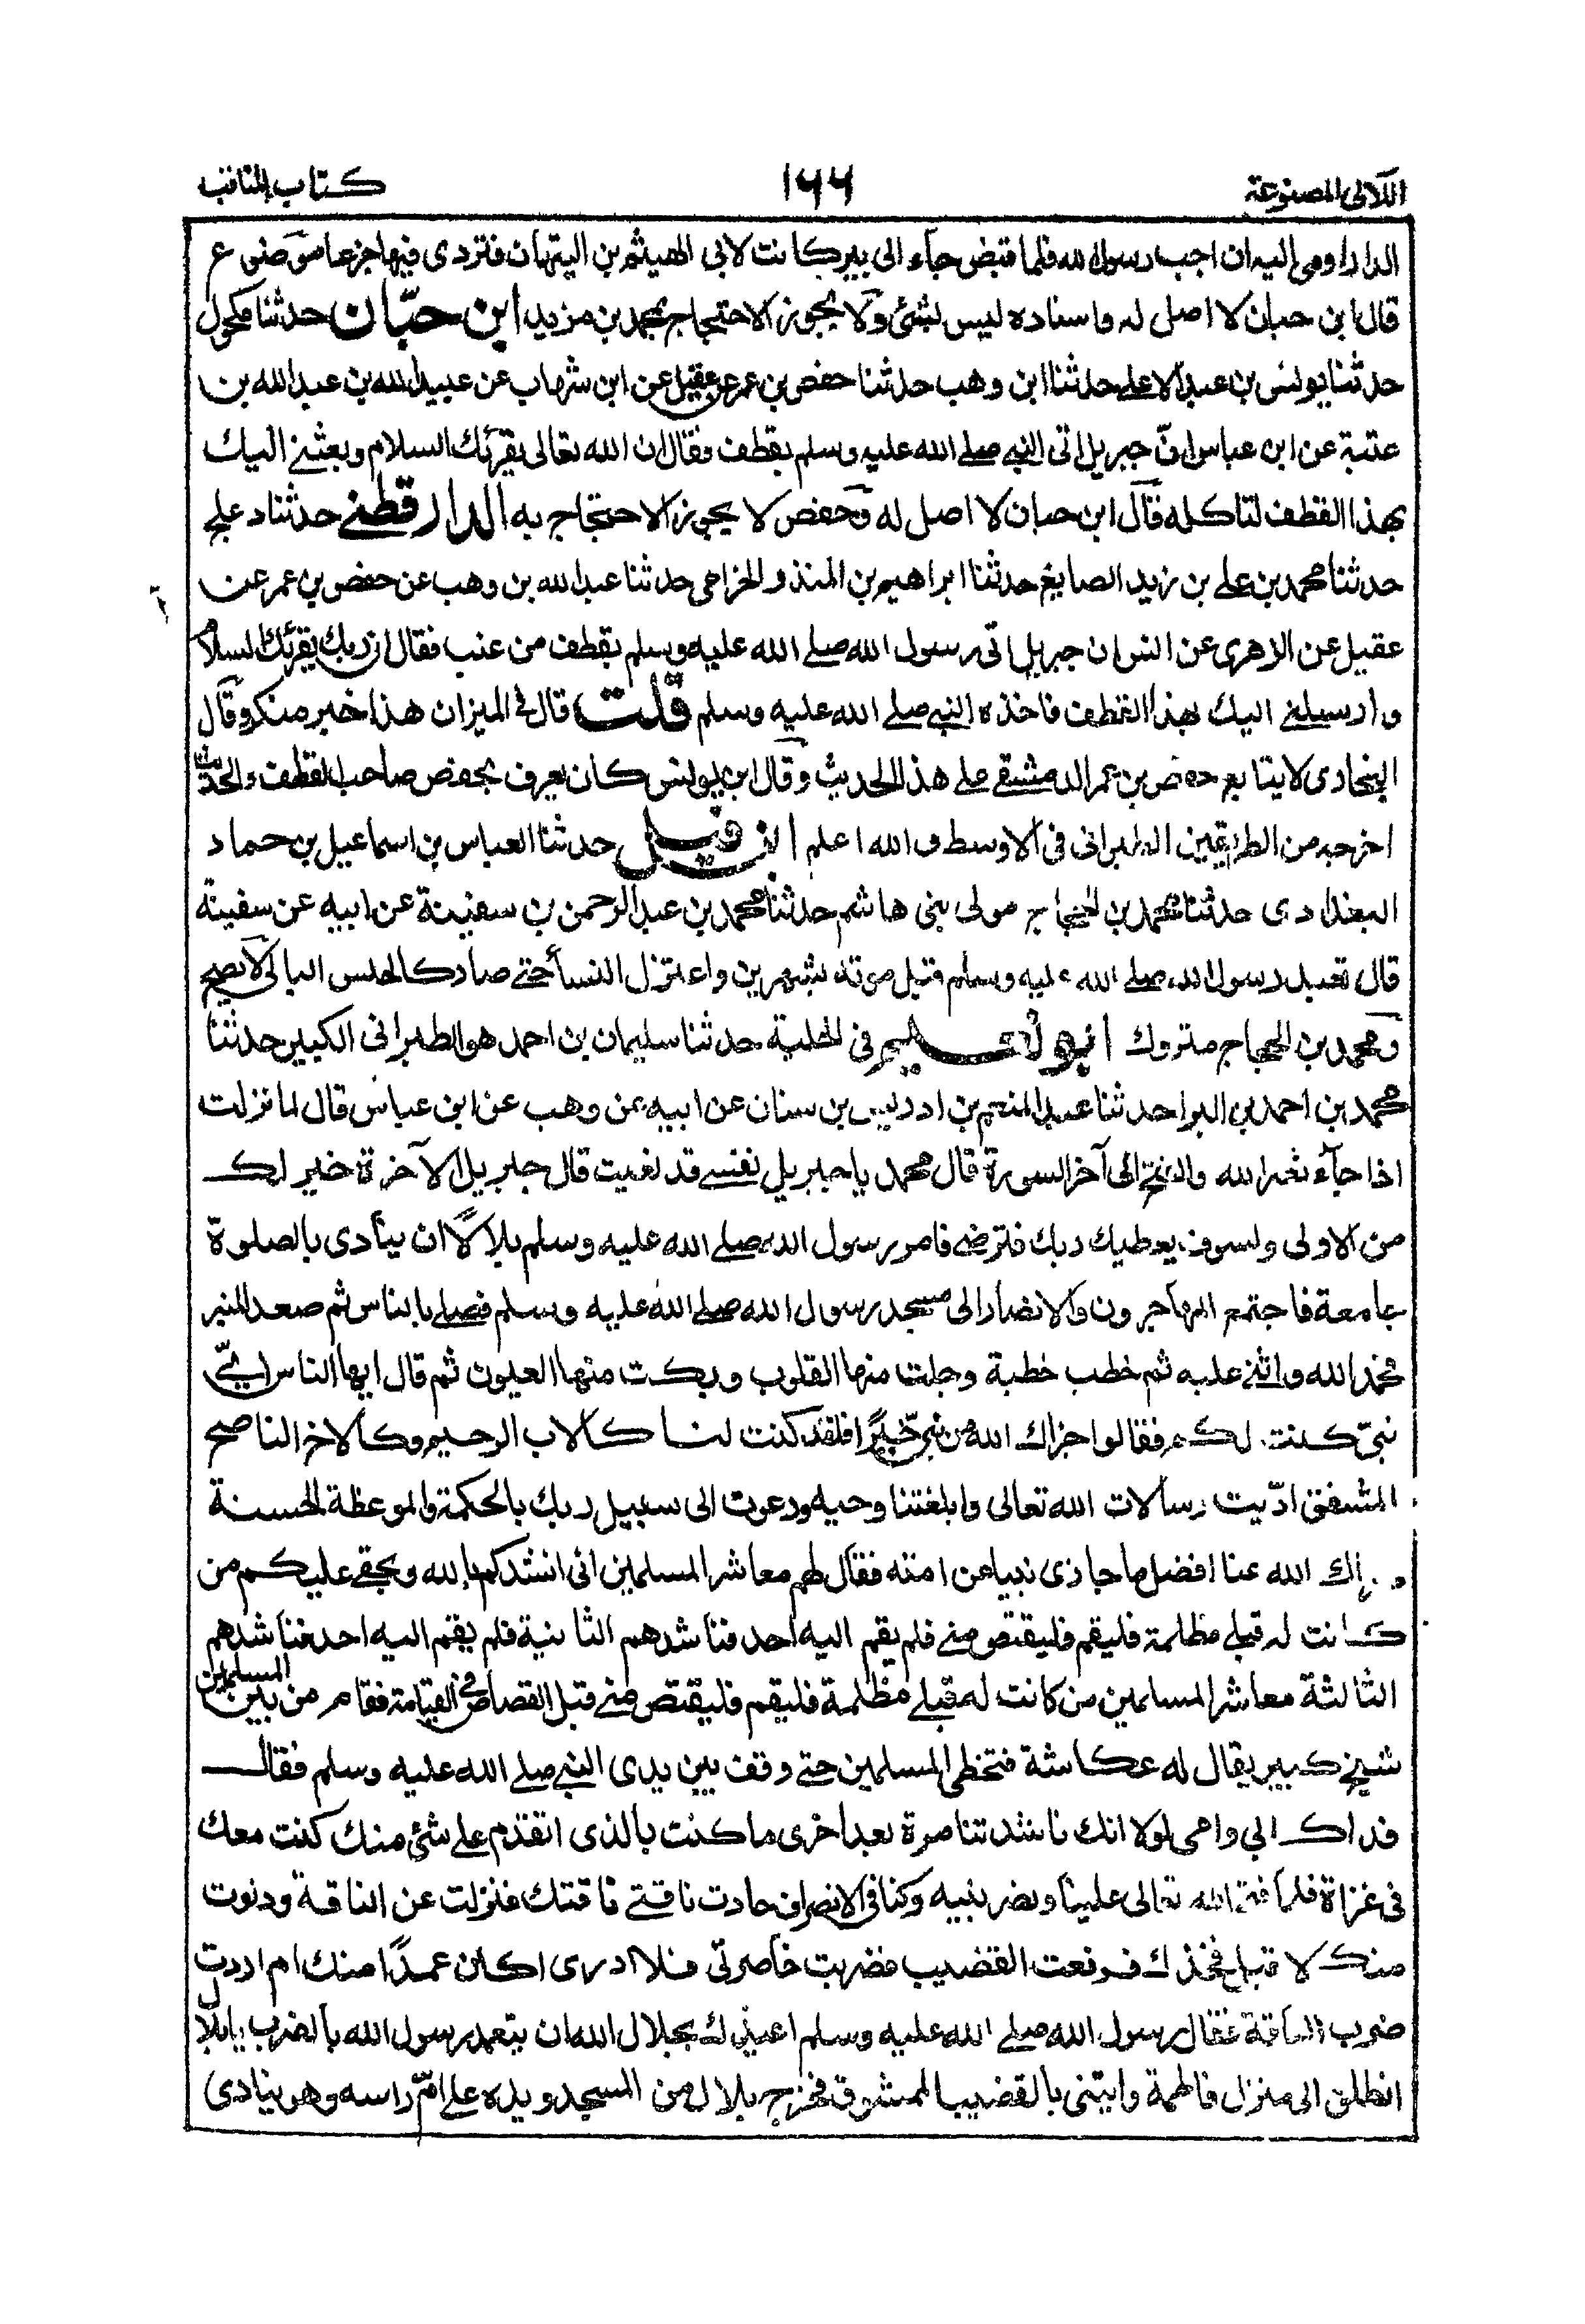 اللآلى المصنوعة ١٦٦ كتاب المناقب
الدار اومى اليه ان اجب رسول الله فلما قبض جاء الى بير كانت لابى الهيثم بن التيهان فتردى فيها جزعا موضوع
قال ابن حبان لا اصل له واسناده ليس بشئ ولا يجوز الاحتجاج بمحمد بن مزيد ابن حبّان حدثنا مكحول
حدثنا يونس بن عبد الاعلى حدثنا ابن وهب حدثنا حفص بن عمر عن عقيل عن ابن شهاب عن عبيد الله بن عبد الله بن
عتبة عن ابن عباس انّ جبريل اتى النبى صلى الله عليه وسلم بقطف فقال ان الله تعالى يقرئك السلام وبعثنى اليك
بهذا القطف لتاكله قال ابن حبان لا اصل له وحفص لا يجوز الاحتجاج به الدارقطنى حدثنا دعلج
حدثنا محمد بن على بن زيد الصايغ حدثنا ابراهيم بن المنذر الحزامى حدثنا عبد الله بن وهب عن حفص بن عمر عن
عقيل عن الزهرى عن انس ان جبريل اتى رسول الله صلى الله عليه وسلم بقطف من عنب فقال ان ربك يقرئك السلام
وارسلنى اليك بهذا القطف فاخذه النبى صلى الله عليه وسلم قلت قال فى الميزان هذا خبر منكر وقال
البخارى لا يتابع حفص بن عمر الدمشقى على هذا الحديث وقال ابن يونس كان يعرف بحفص صاحب القطف والحديث
اخرجه من الطريقين الطبرانى فى الاوسط والله اعلم حدثنا العباس بن اسماعيل بن حماد
البغدادى حدثنا محمد بن الحجاج مولى بنى هاشم حدثنا محمد بن عبد الرحمن بن سفينة عن ابيه عن سفينة
قال تعبد رسول الله صلى الله عليه وسلم قبل موته بشهرين واعتزل النسأ حتى صار كالحلس البالى لا يصح
ومحمد بن الحجاج متروك ابو نعيم فى الحلية حدثنا سليمان بن احمد هو الطبرانى الكبير حدثنا
محمد بن احمد بن البرا حدثنا عبد المنعم بن ادريس بن سنان عن ابيه عن وهب عن ابن عباس قال لما نزلت
اذا جآء نصر الله والفتح الى آخر السورة قال محمد يا جبريل نفسى قد نعيت قال جبريل الآخرة خير لك
من الاولى ولسوف يعطيك ربك فترضى فامر رسول الله صلى الله عليه وسلم بلالًا ان ينادى بالصلوة
جامعة فاجتمع المهاجرون والانصار الى مسجد رسول الله صلى الله عليه وسلم فصلى بالناس ثم صعد المنبر
فحمد الله واثنى عليه ثم خطب خطبة وجلت منها القلوب وبكت منها العيون ثم قال ايها الناس اىّ
نبىّ كنت لكم فقالوا جزاك الله من نبىّ خيرًا فلقد كنت لنا كالاب الرحيم وكالاخ الناصح
المشفق ادّيت رسالات الله تعالى وابلغتنا وحيه ودعوت الى سبيل ربك بالحكمة والموعظة الحسنة
الله عنا افضل ما جازى نبيا عن امته فقال لهم معاشر المسلمين انى انشدكم بالله وبحقى عليكم من
كانت له قبلى مظلمة فليقم فليقتص منى فلم يقم اليه احد فناشدهم الثانية فلم يقم اليه احد فناشدهم
الثالثة معاشر المسلمين من كانت له قبلى مظلمة فليقم فليقتص منى قبل القصاص فى القيامة فقام من بين المسلمين
شيخ كبير يقال له عكاشة فتخطى المسلمين حتى وقف بين يدى النبى صلى الله عليه وسلم فقال
فداك ابى وامى لولا انك ناشدتنا مرة بعد اخرى ما كنت بالذى اتقدم على شئ منك كنت معك
فى غزاة فلما فتح الله تعالى علينا ونصر نبيه وكنا فى الانصراف حادت ناقتى ناقتك فنزلت عن الناقة ودنوت
منك لاقبل فخذك فرفعت القضيب فضربت خاصرتى فلا ادرى اكان عمدًا منك ام اردت
ضرب الناقة فقال رسول الله صلى الله عليه وسلم اعيذك بجلال الله ان يتعمد رسول الله بالضرب يا بلال
انطلق الى منزل فاطمة وايتنى بالقضيب الممشوق فخرج بلال من المسجد ويده على امّ راسه وهو ينادى